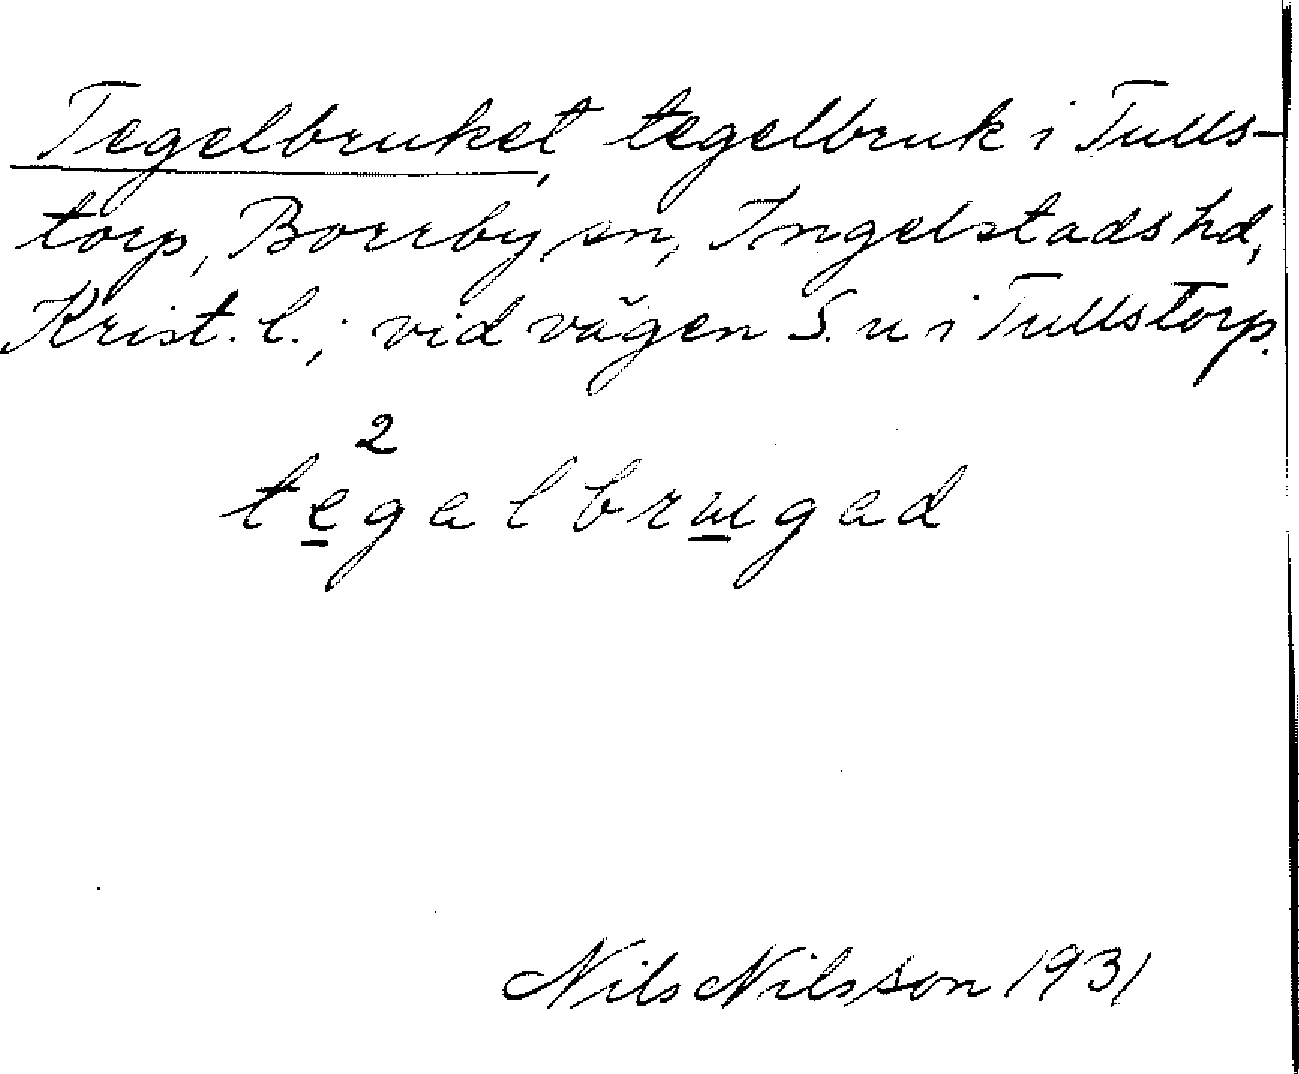 Tegelbruket, tegelbruk i Tulls-
torp, Borrby sn, Ingelstads hd,
Krist. l.; vid vägen S. u i Tullstorp.
2
tegalbrɯgad
Nils Nilsson 1931